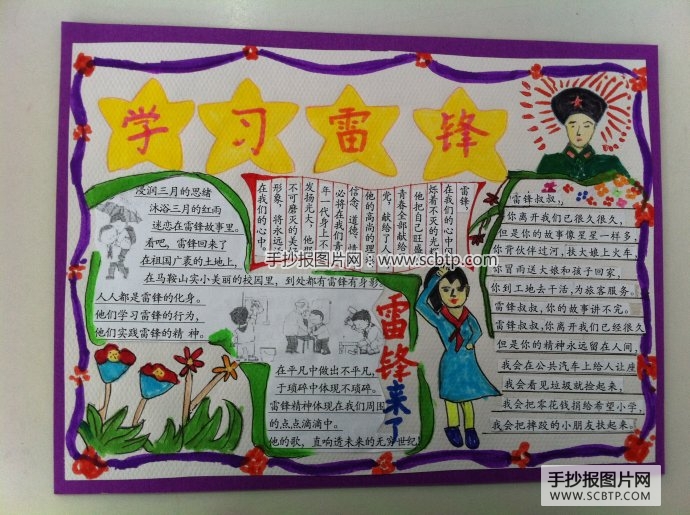 学习雷锋
浸润三月的思绪
沐浴三月的红雨
迷恋在雷锋故事里。
看吧,雷锋回来了
在祖国广袤的土地上,
在马鞍山实小美丽的校园里,到处都有雷锋有身影
人人都是雷锋的化身。
他们学习雷锋的行为,
他们实践雷锋的精 神。
雷锋,
在我们的心中,
烁着不灭的光
他把自己旺盛
青春全部献给
党,献给了人
他的高尚的理
信念、道德、情
必将在我们青
年一代身上不
发扬光大,他那
不可磨灭的美
形象,将永远
在我们的心中。
在平凡中做出不平凡,
于琐碎中体现不琐碎。
雷锋精神体现在我们周围
的点点滴滴中。
他的歌,直响透未来的无穷世纪!
雷锋来了
雷锋叔叔,
你离开我们已很久很久,
但是你的故事像星星一样多,
你背伙伴过河,扶大娘上火车,
你冒雨送大娘和孩子回家,
你到工地去干活,为旅客服务。
雷锋叔叔,你的故事讲不完。
雷锋叔叔,你离开我们已经很久
但是你的精神永远留在人间,
我会在公共汽车上给人让座
我会看见垃圾就捡起来,
我会把零花钱捐给希望小学,
我会把摔跤的小朋友扶起来。
手抄报图片网 www.scbtp.com
手抄报图片网
WWW.SCBTP.COM